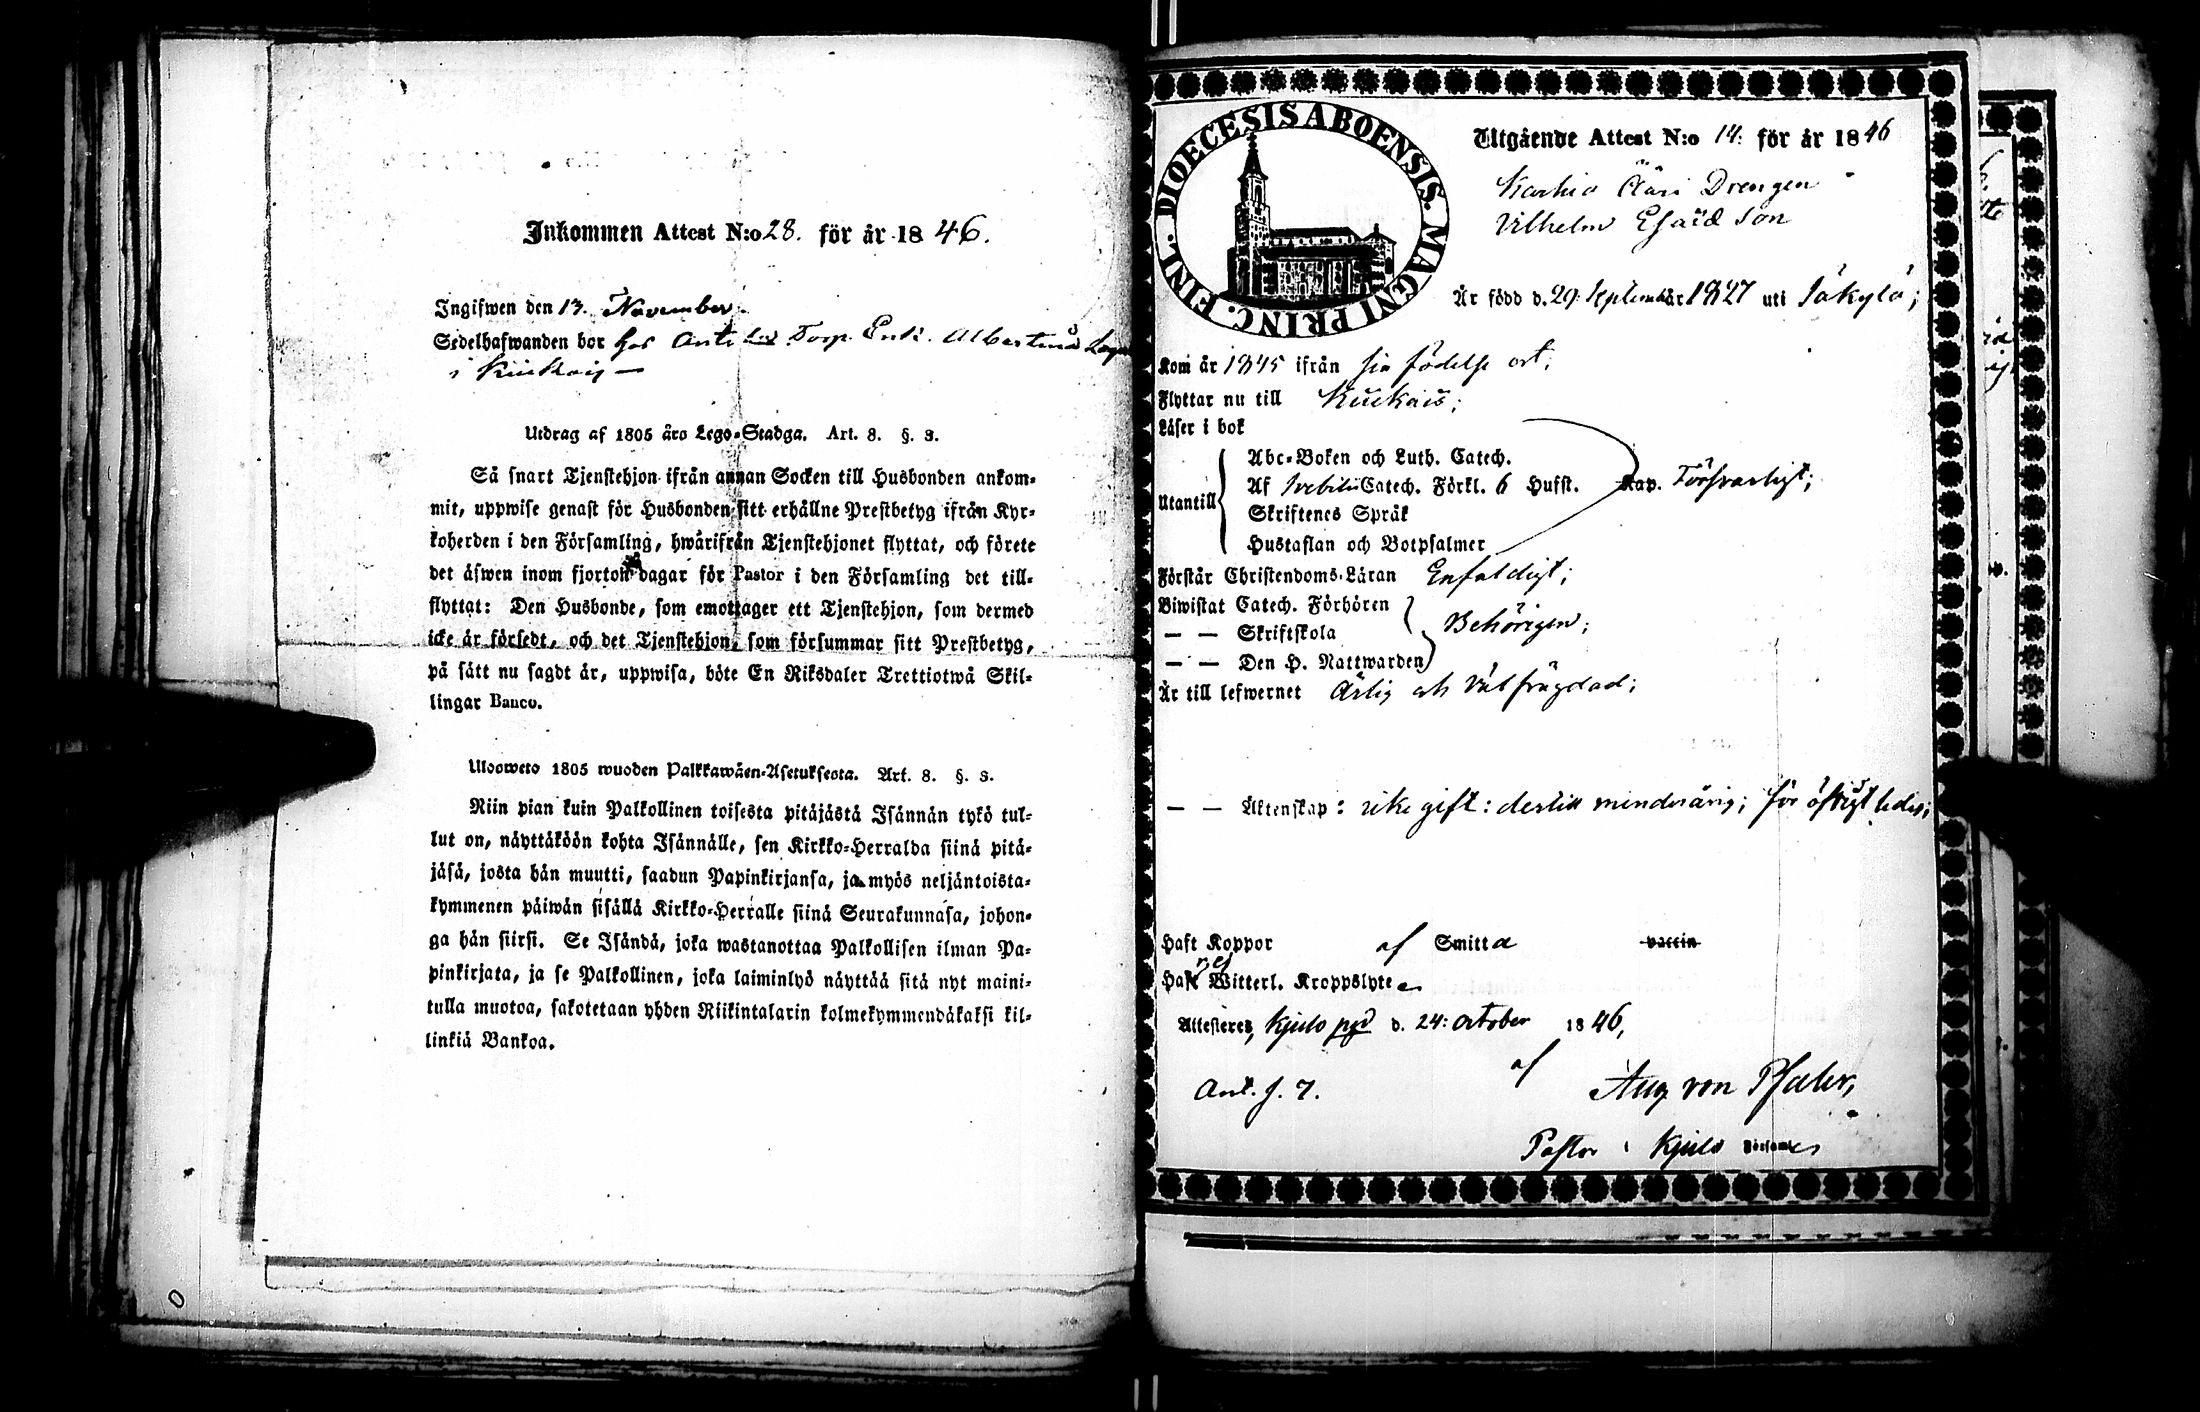 Inkommen Attest N:o 28. för år 1846.
Ingifwen den 13. November.
Sedelhafwanden bor hos Torp. Enk. Albertina
i Kiukais
Utdrag af 1805 års Lego-Stadga. Art. 8. §. 3.
Så snart Tjenstehjon ifrån annan Socken till Husbonden ankom-
mit, uppwise genast för Husbonden sitt erhållne Prestbetyg ifrån Kyr-
koherden i den Församling, hwarifrån Tjenstehjonet flyttat, och förete
det äfwen inom fjorton dagar för Pastor i den Församling det till-
flyttat: Den Husbonde, som emottager ett Tjenstehjon, som dermed
icke är försedt, och det Tjenstehjon, som försummar sitt Prestbetyg,
på sätt nu sagdt är, uppwisa, böte En Riksdaler Trettiotwå Skil-
lingar Banco.
Ulosweto 1805 wuoden Palkkawäen-Asetuksesta. Art. 8. §. 3.
Niin pian kuin Palkollinen toisesta pitäjästä Isännän tykö tul-
lut on, näyttäköön kohta Isännälle, sen Kirkko-Herralda siinä pitä-
jäsä, josta hän muutti, saadun Papinkirjansa, ja myös neljäntoista-
kymmenen päiwän sisällä Kirkko-Herralle siinä Seurakunnasa, johon-
ga hän siirsi. Se Isändä, joka wastanottaa Palkollisen ilman Pa-
pinkirjata, ja se Palkollinen, joka laiminlyö näyttää sitä nyt maini-
tulla muotoa, sakotetaan yhden Riikintalarin kolmekymmendäkaksi kil-
linkiä Bankoa.
DIOECESIS ABOENSIS. MAGNI PRINC. FINL.
Utgående Attest N:o 14. för år 1846
Drengen
Vilhelm Esaiæ Son
Är född d. 29. September år 1827 uti Säkylä;
Kom år 1845 ifrån sin födelse ort;
Flyttar nu till Kiukais;
Läser i bok
Abc-Boken och Luth. Catech.
Utantill Af Svebilii Catech. Förkl. 6 Hufst. Kap. Försvarligt;
Skriftenes Språk
Hustaflan och Botpsalmer
Förstår Christendoms-Läran Enfaldigt;
Biwistat Catech. Förhören
— — Skriftskola Behörigen;
— — Den H. Nattwarden
Är till lefwernet Ärlig och Välfrägdad;
— — Äktenskap: icke gift: dertill minderårig; för öfrigt ledig;
Haft Koppor af Smitta vaccin
Haft ej Witterl. Kroppslyte
Attesteres, Kjulo pgd d. 24: October 1846,
af
Ant. f. 7. Aug von Pfaler,
Pastor i Kjulo Församl